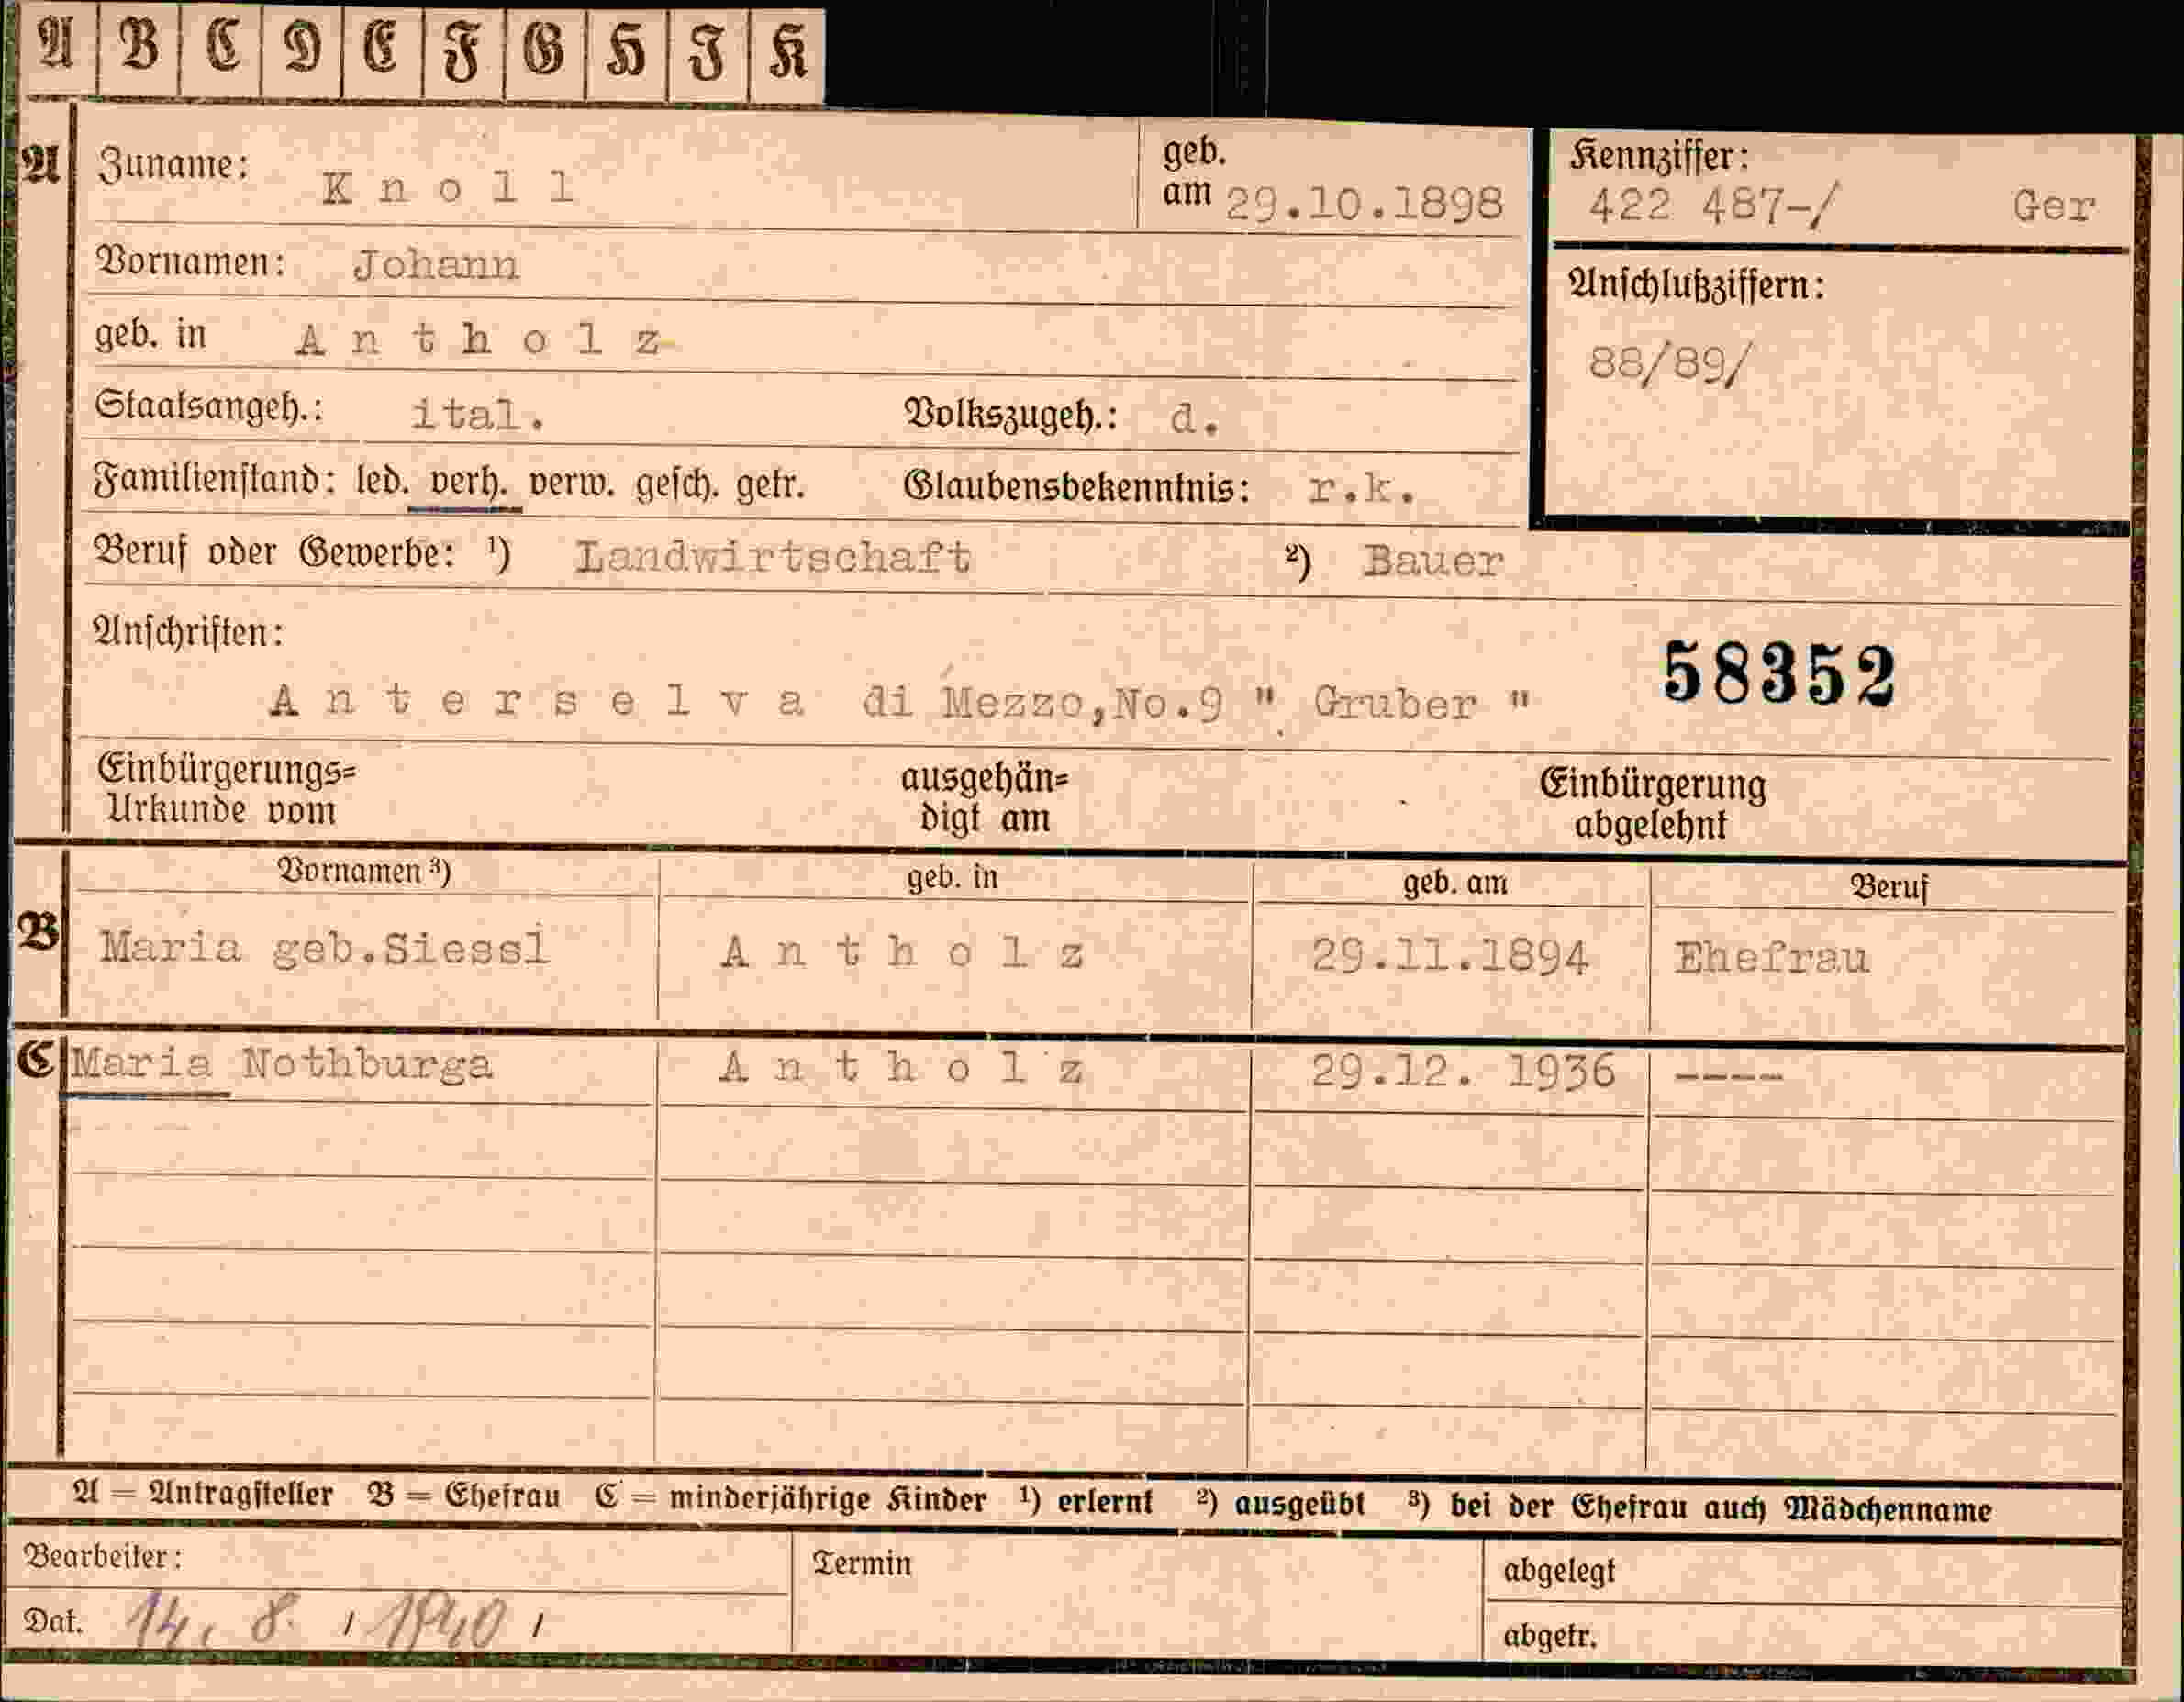 A B C D E F G H I K
A Zuname: Knoll geb. am 29.10.1898 Kennziffer: 422 487-/ Ger
Vornamen: Johann Anschlußziffern:
geb. in Antholz 88/89/
Staatsangeh.: ital. Volkszugeh.: d.
Familienstand: led. verh. verw. gesch. getr. Glaubensbekenntnis: r.k.
Beruf oder Gewerbe: ¹) Landwirtschaft ²) Bauer
Anschriften: 58352
Anterselva di Mezzo,No.9 " Gruber "
Einbürgerungs= ausgehän= Einbürgerung
Urkunde vom digt am abgelehnt
Vornamen ³) geb. in geb. am Beruf
B Maria geb.Siessl Antholz 29.11.1894 Ehefrau
C Maria Nothburga Antholz 29.12. 1936 ----
A = Antragsteller B = Ehefrau C = minderjährige Kinder ¹) erlernt ²) ausgeübt ³) bei der Ehefrau auch Mädchenname
Bearbeiter: Termin abgelegt
Dat. 14. 8. 1940 abgetr.